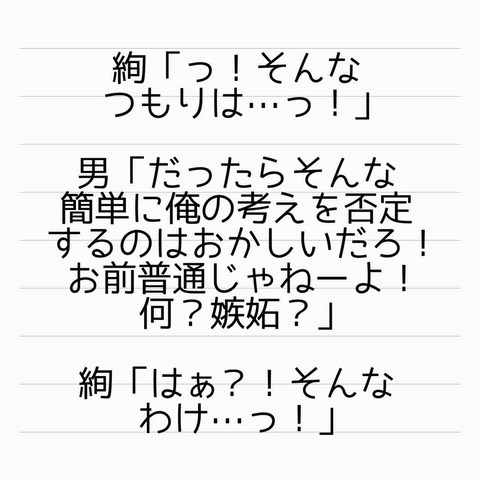 絢「っ！そんな
つもりは…っ！」
男「だったらそんな
簡単に俺の考えを否定
するのはおかしいだろ！
お前普通じゃねーよ！
何？嫉妬？」
絢「はぁ？！そんな
わけ…っ！」